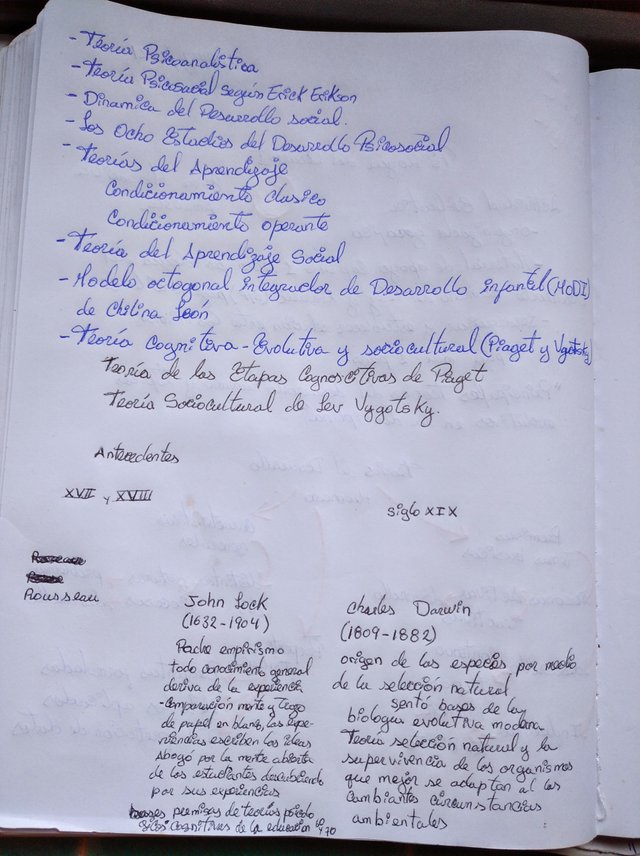 - Teoría Psicoanalítica
- Teoría Psicosocial según Erick Erikson
- Dinamica del Desarrollo social.
- Los Ocho Estadios del Desarrollo Psicosocial
- Teorías del Aprendizaje
Condicionamiento clasico
Condicionamiento operante
- Teoría del Aprendizaje Social
- Modelo octogonal integrador de Desarrollo infantil (MODI)
de Chilina León
- Teoría cognitiva - Evolutiva y sociocultural (Piaget y Vgotsky)
Teoría de las Etapas Cognoscitivas de Piaget
Teoría Sociocultural de Lev Vygotsky.
Antecedentes
XVII y XVIII
siglo XIX
Rousseau
John Lock
(1632-1904)
Padre empirismo
todo conocimiento general
deriva de la experiencia
- comparación mente y trozo
de papel en blanco, las expe-
riencias escriben las ideas
Abogó por la mente abierta
de los estudiantes descubriendo
por sus experiencias
bases premisas de teorías psicolo
gicas cognitivas de la educación 60 y 70
Charles Darwin
(1809-1882)
origen de las especies por medio
de la selección natural
sentó bases de la
biologia evolutiva moderna
Teoría selección natural y la
supervivencia de los organismos
que mejor se adaptan al las
cambiantes circunstancias
ambientales